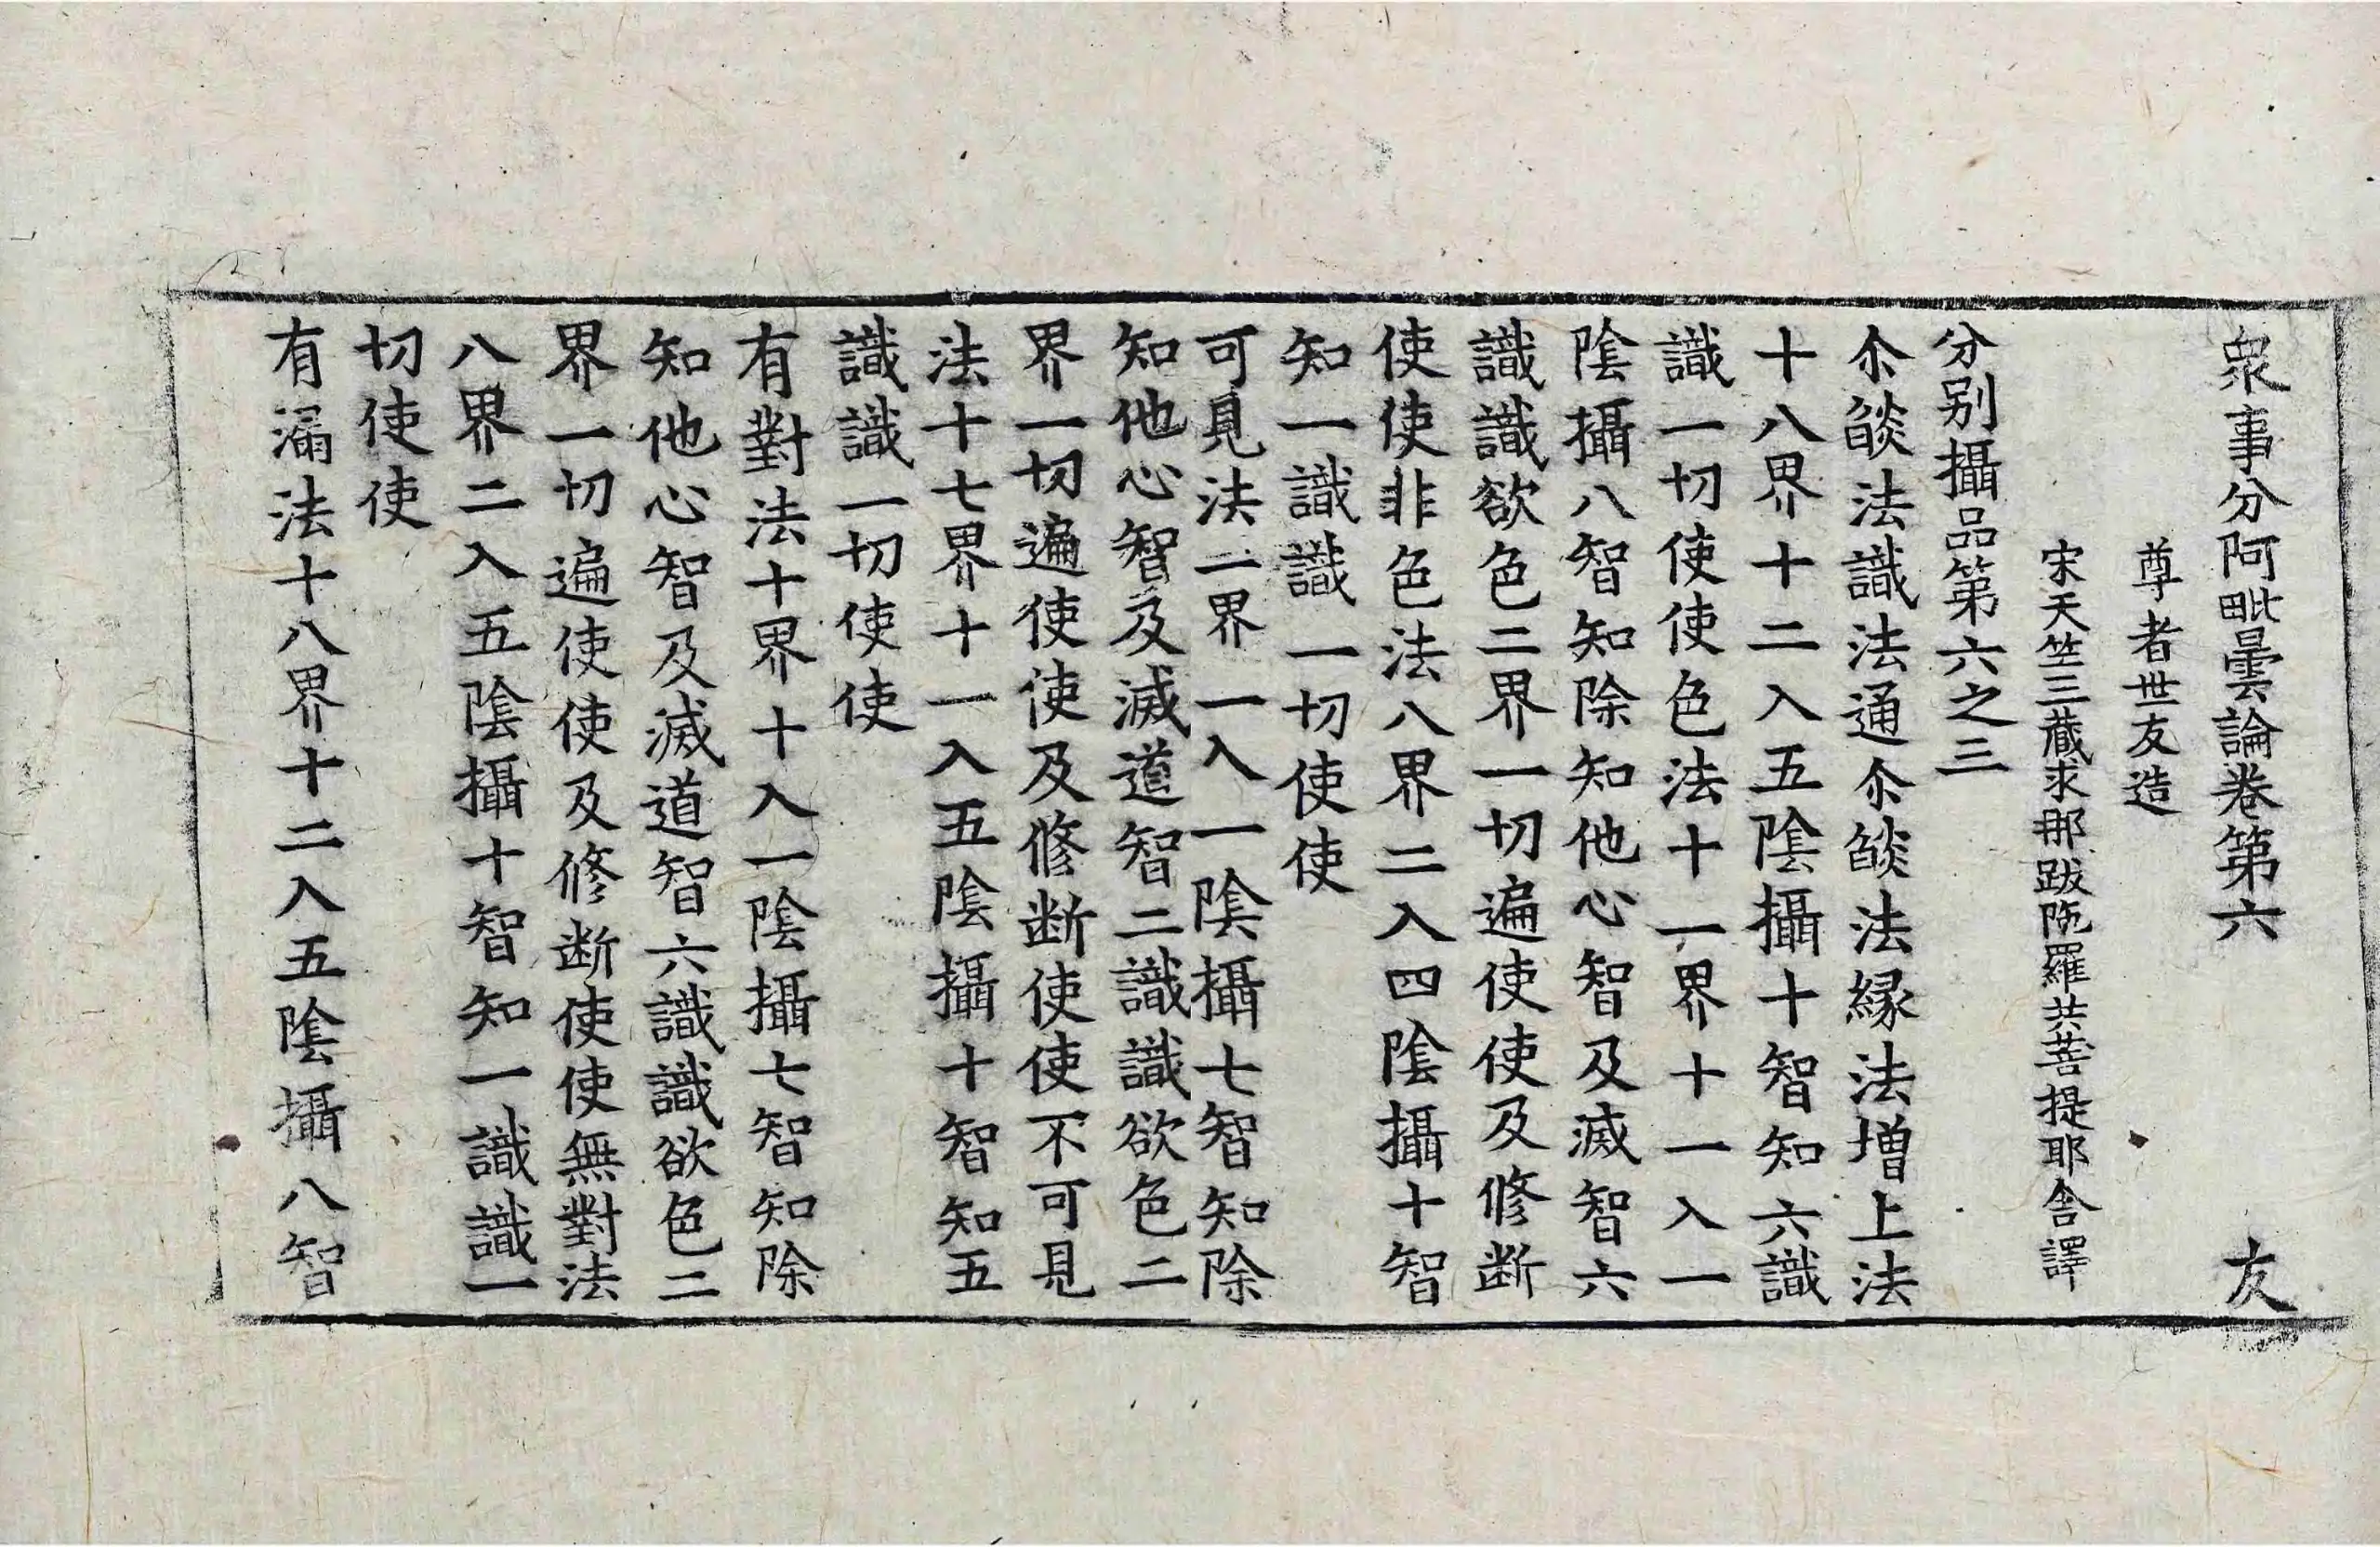 衆事分阿毗曇論卷第六 友
尊者世友造
宋天竺三藏求那跋陁羅共菩提耶舍譯
分别攝品第六之三
尒燄法識法通尒燄法縁法增上法
十八界十二入五隂攝十智知六識
識一切使使色法十一界十一入一
隂攝八智知除知他心智及滅智六
識識欲色二界一切遍使使及修断
使使非色法八界二入四隂攝十智
知一識識一切使使
可見法二界一入一隂攝七智知除
知他心智及滅道智二識識欲色二
界一切遍使使及修断使使不可見
法十七界十一入五隂攝十智知五
識識一切使使
有對法十界十入一隂攝七智知除
知他心智及滅道智六識識欲色二
界一切遍使使及修断使使無對法
八界二入五隂攝十智知一識識一
切使使
有漏法十八界十二入五隂攝八智